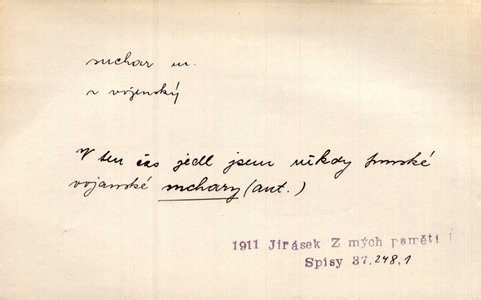 suchar m.
v vojenský
V ten čas jedl jsem někdy pruské
vojanské suchary (aut.)
1911 Jirásek Z mých pamětí I
Spisy 37, 248, 1